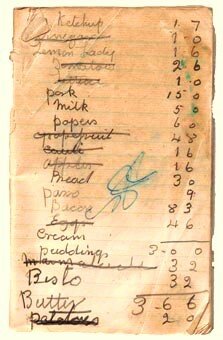 Ketchup 1 7
Vinegar 1 0
Lemon 1 6
Tomatoes 2 6
1 0
pork 15 0
Milk 5
papers 6 0
Grapefruit 4 8
1 6
apples 1 6
Bread 3 0
9
Bacon 8 3
Eggs 4 6
Cream
puddings 3-0 0
Marmalade 3 2
Bisto 3 2
Butter 3-6 6
potatoes 2 0